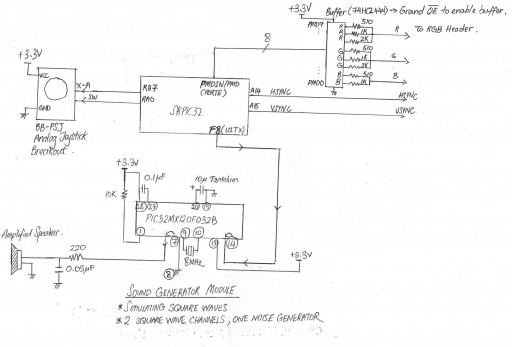 +3.3V
Buffer (74HC244) → Ground OE to enable buffer.
PMD7
R 510
R 1K
R 2K
R
To RGB Header.
8
G 510
G 1K
G 2K
G
B 510
B 1K
B
PMD0
+3.3V
VCC
GND
X-A
SW
RA7
RA0
PMDIN/PMD
(PORTE)
A14
HSYNC
HSYNC
A15
VSYNC
VSYNC
F8 (U1TX)
BB-PSJ
Analog Joystick
Breakout.
+3.3V
10K
0.1µF
10µ Tantalum
+
28
27
20
19
PIC32MX120F032B
1
7
9
10
13
14
8
8MHz
+3.3V
Amplified Speaker.
220
0.05µF
SOUND GENERATOR MODULE
* SIMULATING SQUARE WAVES
* 2 SQUARE WAVE CHANNELS, ONE NOISE GENERATOR